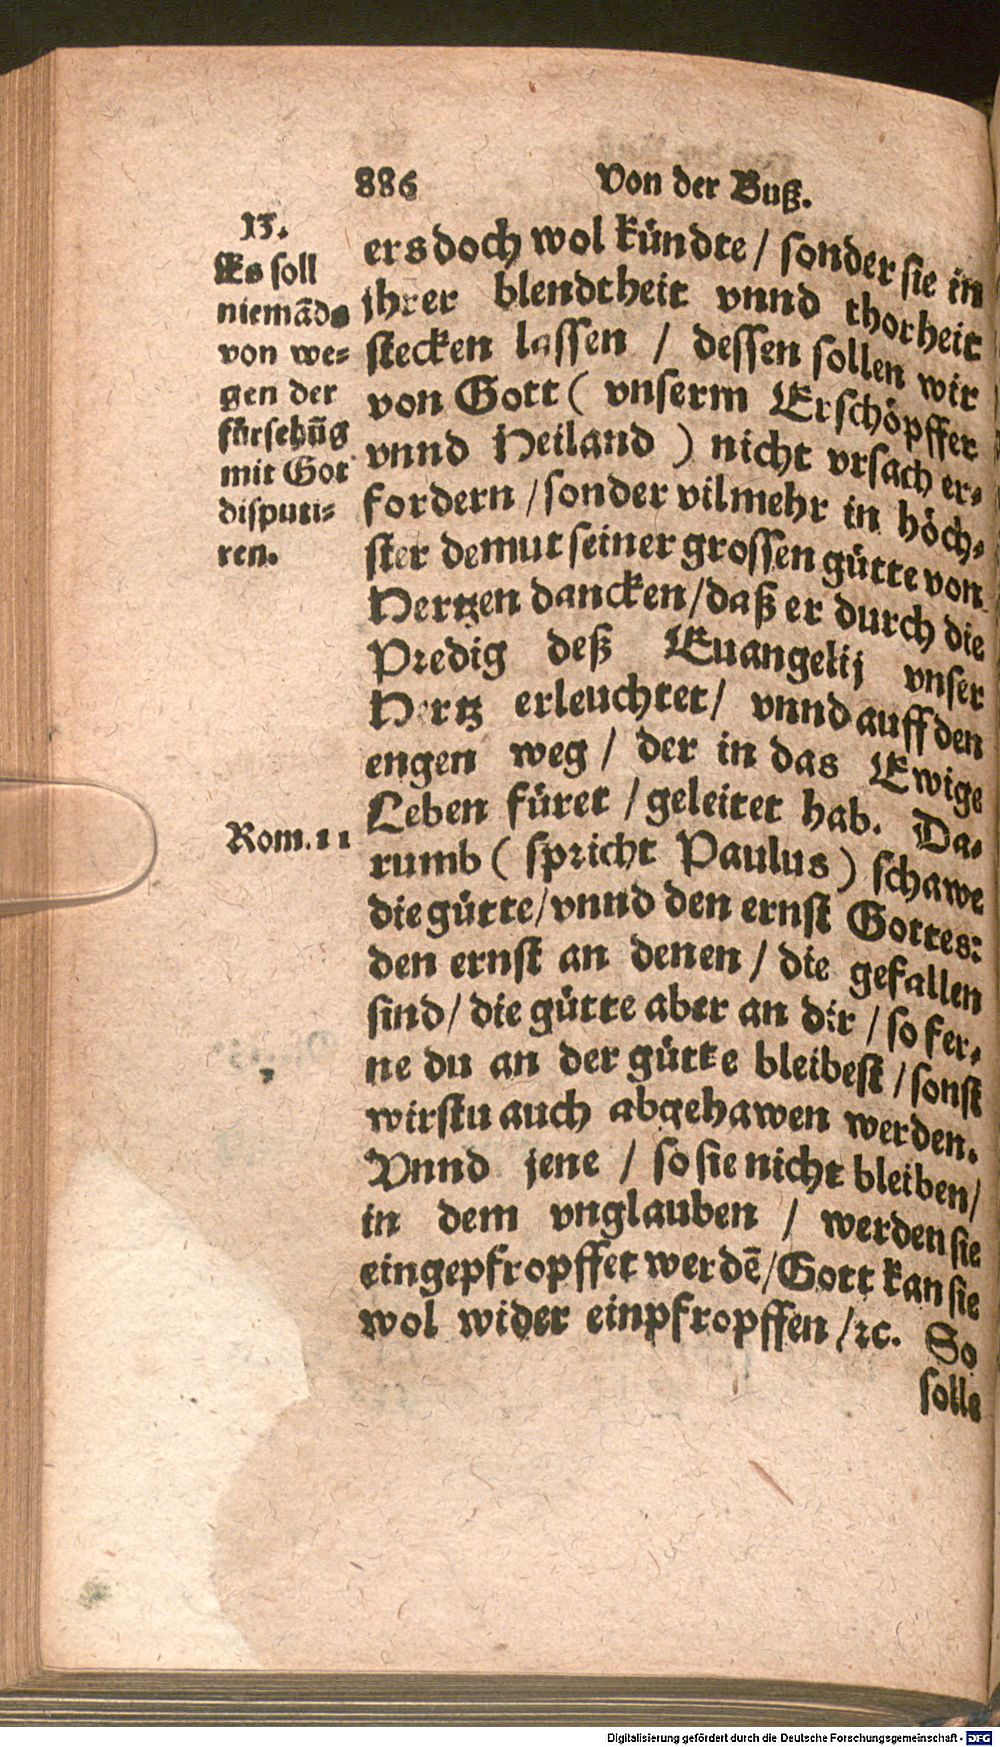 886 Von der Buß.
13.
Es soll
niemãds
von we=
gen der
fürsehũg
mit Got
disputi=
ren.
ers doch wol kündte / sonder sie in
jhrer blendtheit vnnd thorheit
stecken lassen / dessen sollen wir
von Gott ( vnserm Erschöpffer
vnnd Heiland ) nicht vrsach er=
fordern / sonder vilmehr in höch=
ster demut seiner grossen gütte von
Hertzen dancken / daß er durch die
Predig deß Euangelij vnser
Hertz erleuchtet / vnnd auff den
engen weg / der in das Ewige
Leben füret / geleitet hab. Da=
rumb ( spricht Paulus ) schawe
die gütte / vnnd den ernst Gottes:
den ernst an denen / die gefallen
sind / die gütte aber an dir / so fer=
ne du an der gütte bleibest / sonst
wirstu auch abgehawen werden.
Vnnd jene / so sie nicht bleiben /
in dem vnglauben / werden sie
eingepfropffet werdẽ / Gott kan sie
wol wider einpfropffen / ꝛc. So
solls
Rom. 11
Digitalisierung gefördert durch die Deutsche Forschungsgemeinschaft - DFG